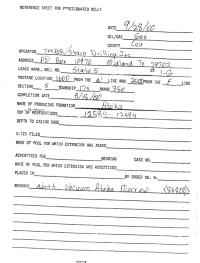 REFERENCE SHEET FOR UNDESIGNATED WELLS
DATE 9/28/00
OIL/GAS Gas
COUNTY Lea
OPERATOR TMBR/Sharp Drilling Inc
ADDRESS PO Box 10970 Midland Tx 79702
LEASE NAME, WELL NO. State 5 # 1-G
FOOTAGE LOCATION 1800 FROM THE N LINE AND FROM THE E LINE
SECTION 5 TOWNSHIP RANGE 35e
COMPLETION DATE
NAME OF PRODUCING FORMATION Atoka
TOP OF PERFORATIONS 12584-12694
DEPTH TO CASING SHOE
C-123 FILED
NAME OF POOL FOR WHICH EXTENSION WAS ASKED
ADVERTISED FOR HEARING CASE NO.
NAME OF POOL FOR WHICH EXTENSION WAS ADVERTISED
PLACED IN
BY ORDER NO. R-
REMARKS North Vacuum Atoka Morrow